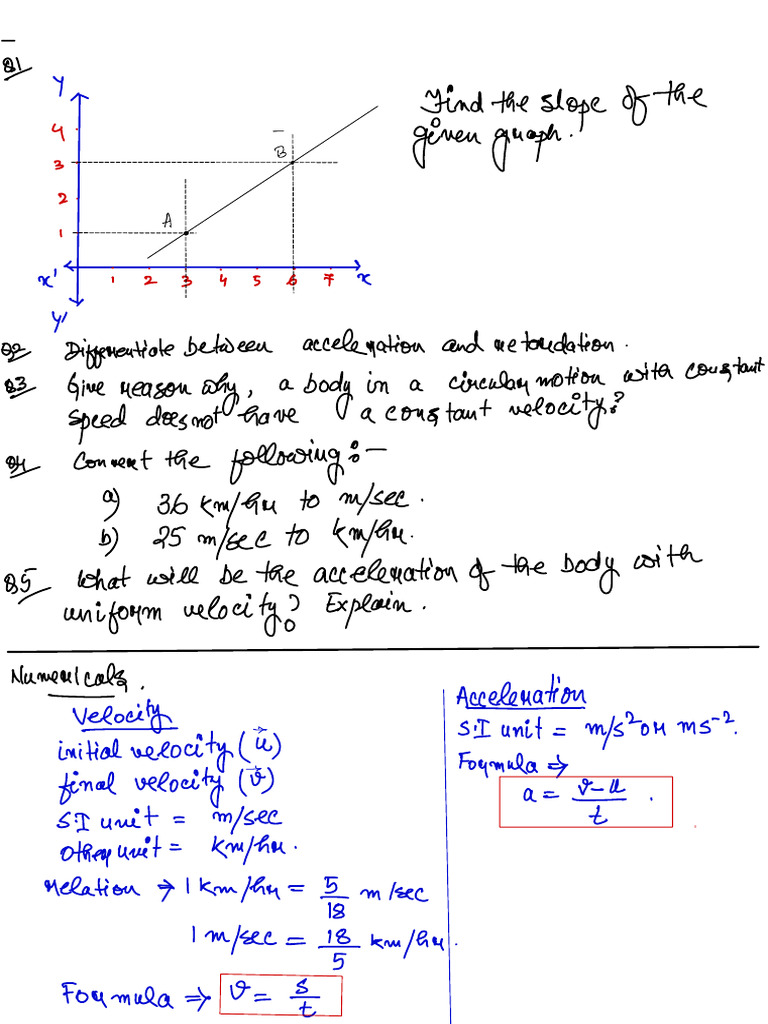 Q1
Y
4
3
2
1
A
B
X'
1 2 3 4 5 6 7
X
Y'
Find the slope of the
given graph.
Q2 Differentiate between acceleration and retardation.
Q3 Give reason why, a body in a circular motion with constant
speed does not have a constant velocity?
Q4 Convert the following:-
a) 36 km/hr to m/sec.
b) 25 m/sec to km/hr.
Q5 What will be the acceleration of the body with
uniform velocity? Explain.
Numericals.
Velocity
initial velocity (u⃗)
final velocity (v⃗)
S.I unit = m/sec
Other unit = km/hr.
Relation → 1 km/hr = 5/18 m/sec
1 m/sec = 18/5 km/hr.
Formula ⇒ v = s/t
Acceleration
S.I unit = m/s² or ms⁻².
Formula ⇒
a = v-u/t .